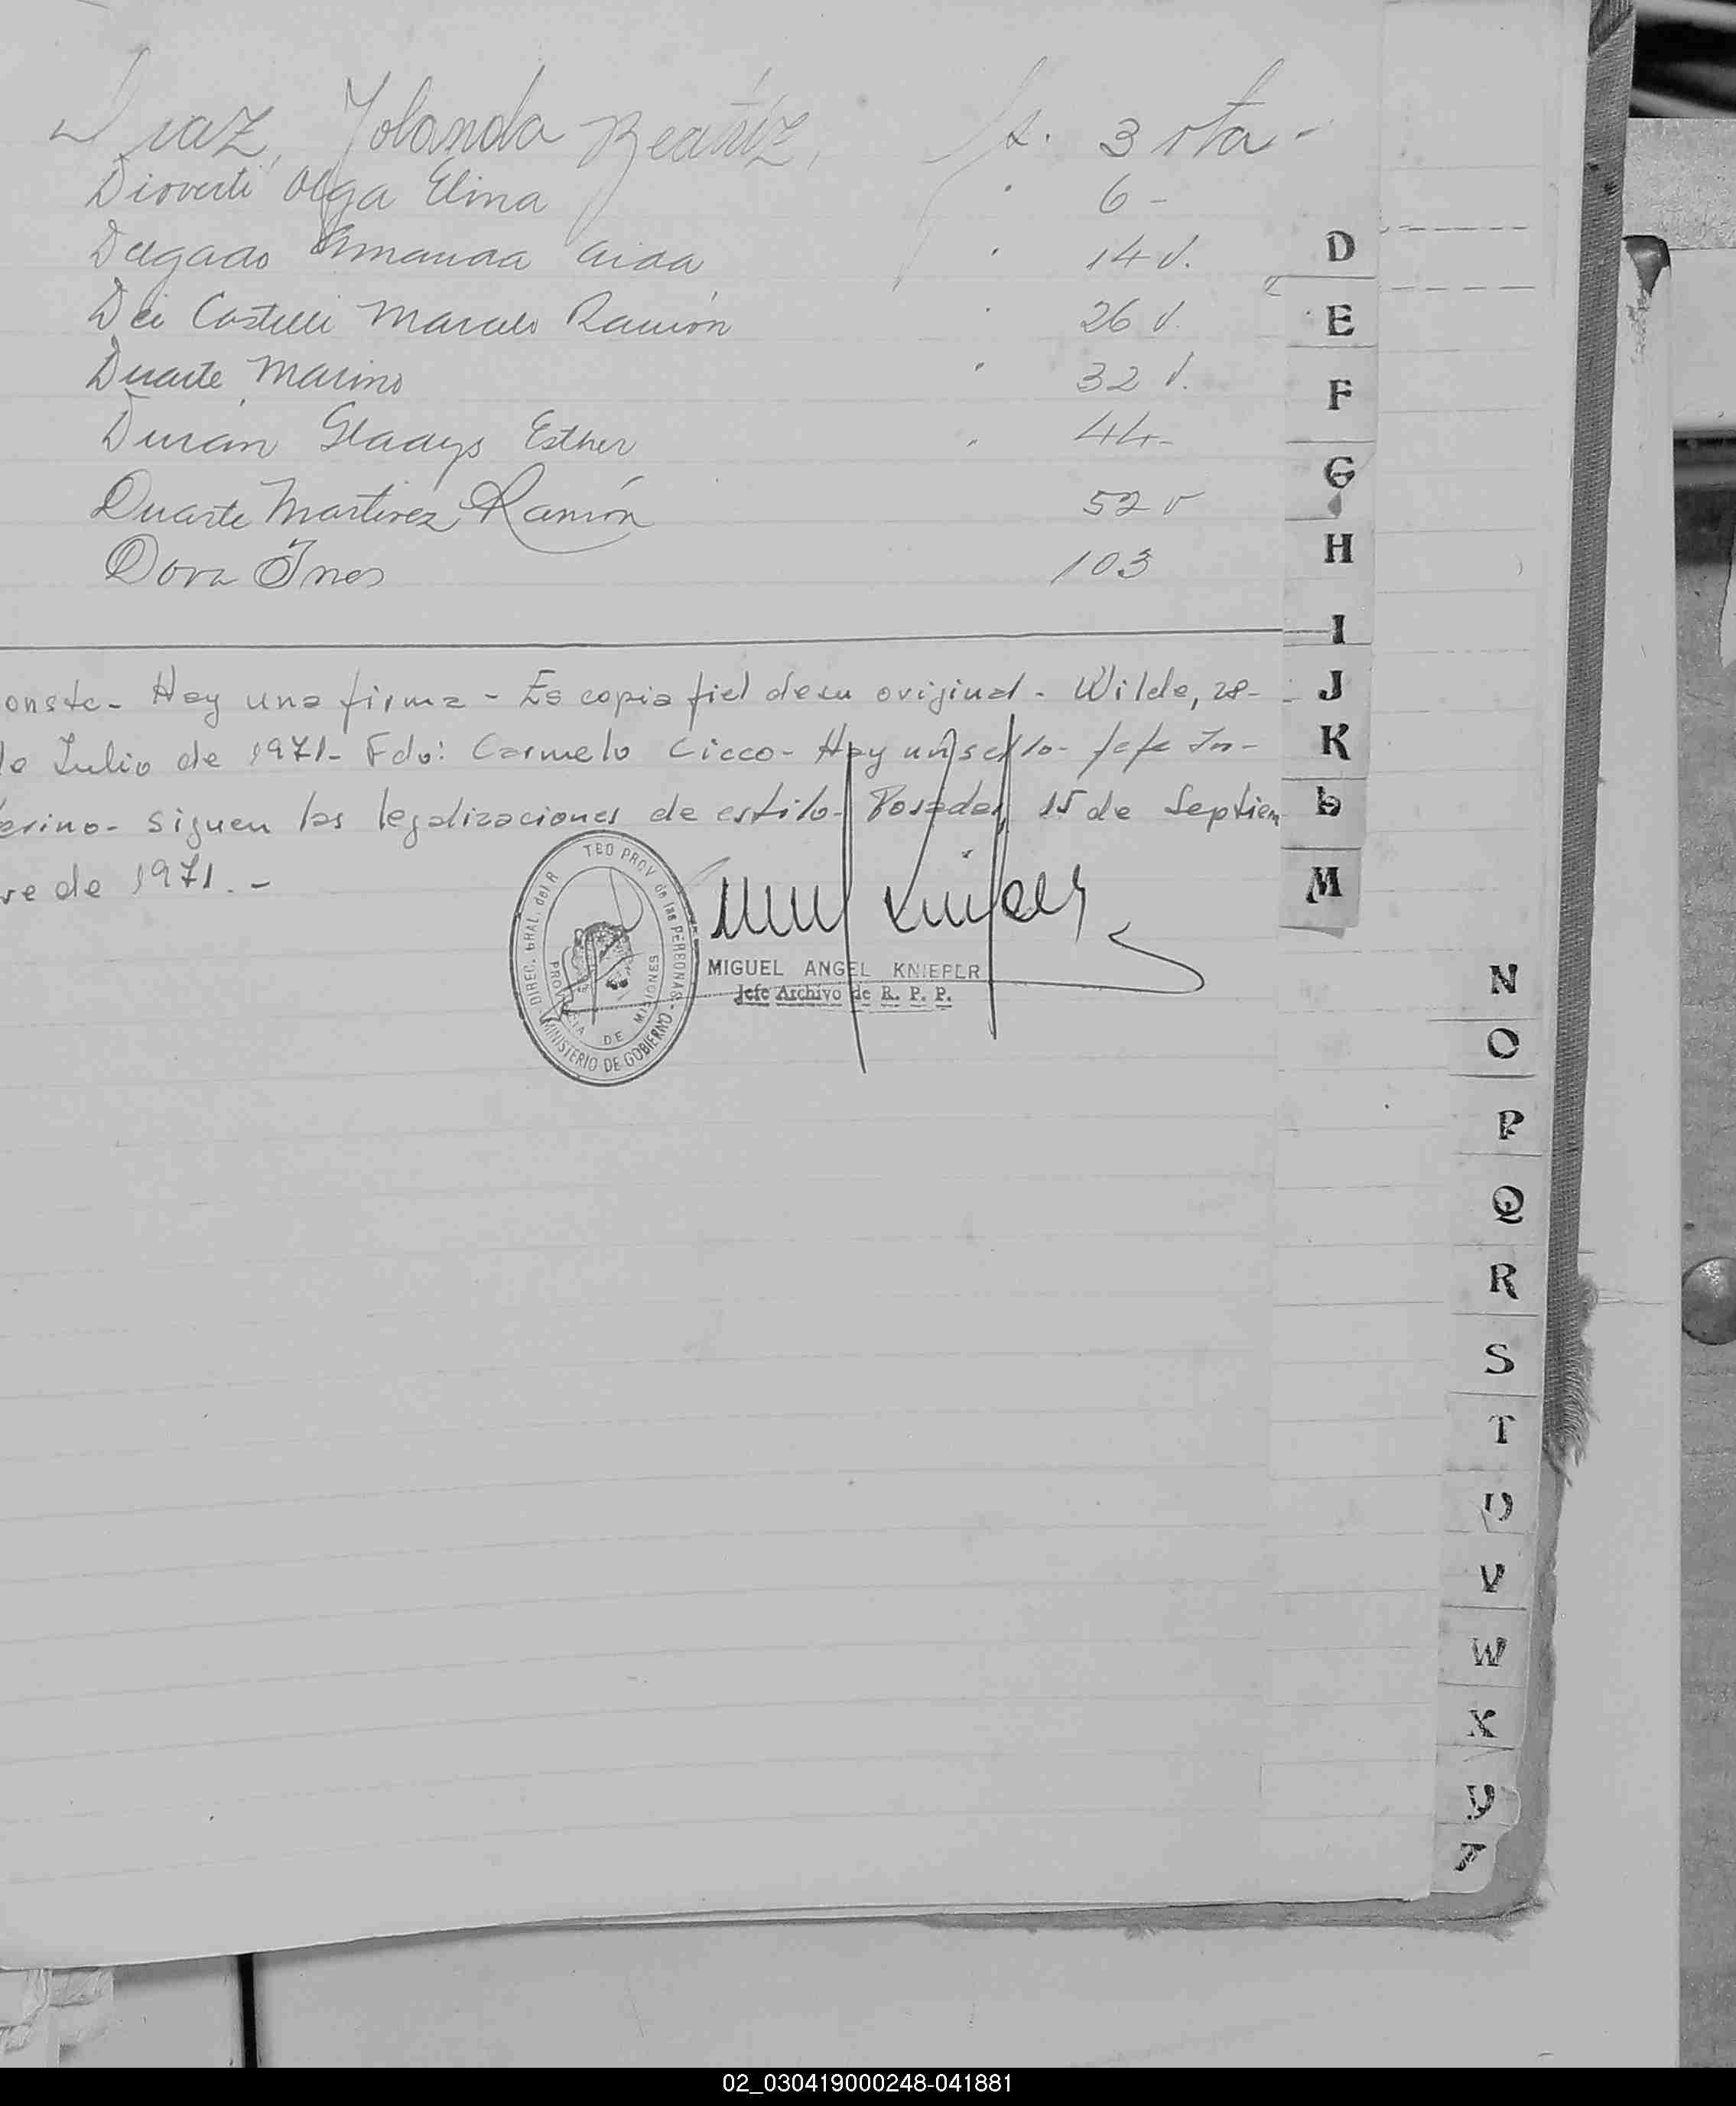 Diaz, Yolanda Beatriz, fs. 3 vta -
Dioverti Olga Elina " 6 -
Delgado Amanda Aida " 14 v.
Dei Castelli Marcelo Ramón " 26 v.
Duarte, Marino " 32 v.
Durán Gladys Esther " 44 -
Duarte Martinez Ramón 52 v
Dora Ines 103
onste- Hay una firma - Es copia fiel de su original - Wilde, 28-
de Julio de 1971- Fdo: Carmelo Cicco- Hay un sello- Jefe In-
terino- siguen las legalizaciones de estilo- Posadas, 15 de Septiem
re de 1971.-
DIREC. GRAL. del R TRO PROV de las PERSONAS - MINISTERIO DE GOBIERNO
PROVINCIA DE MISIONES
MIGUEL ANGEL KNIEPER
Jefe Archivo de R. P. P.
D
E
F
G
H
I
J
K
L
M
N
O
P
Q
R
S
T
U
V
W
X
Y
Z
02_030419000248-041881